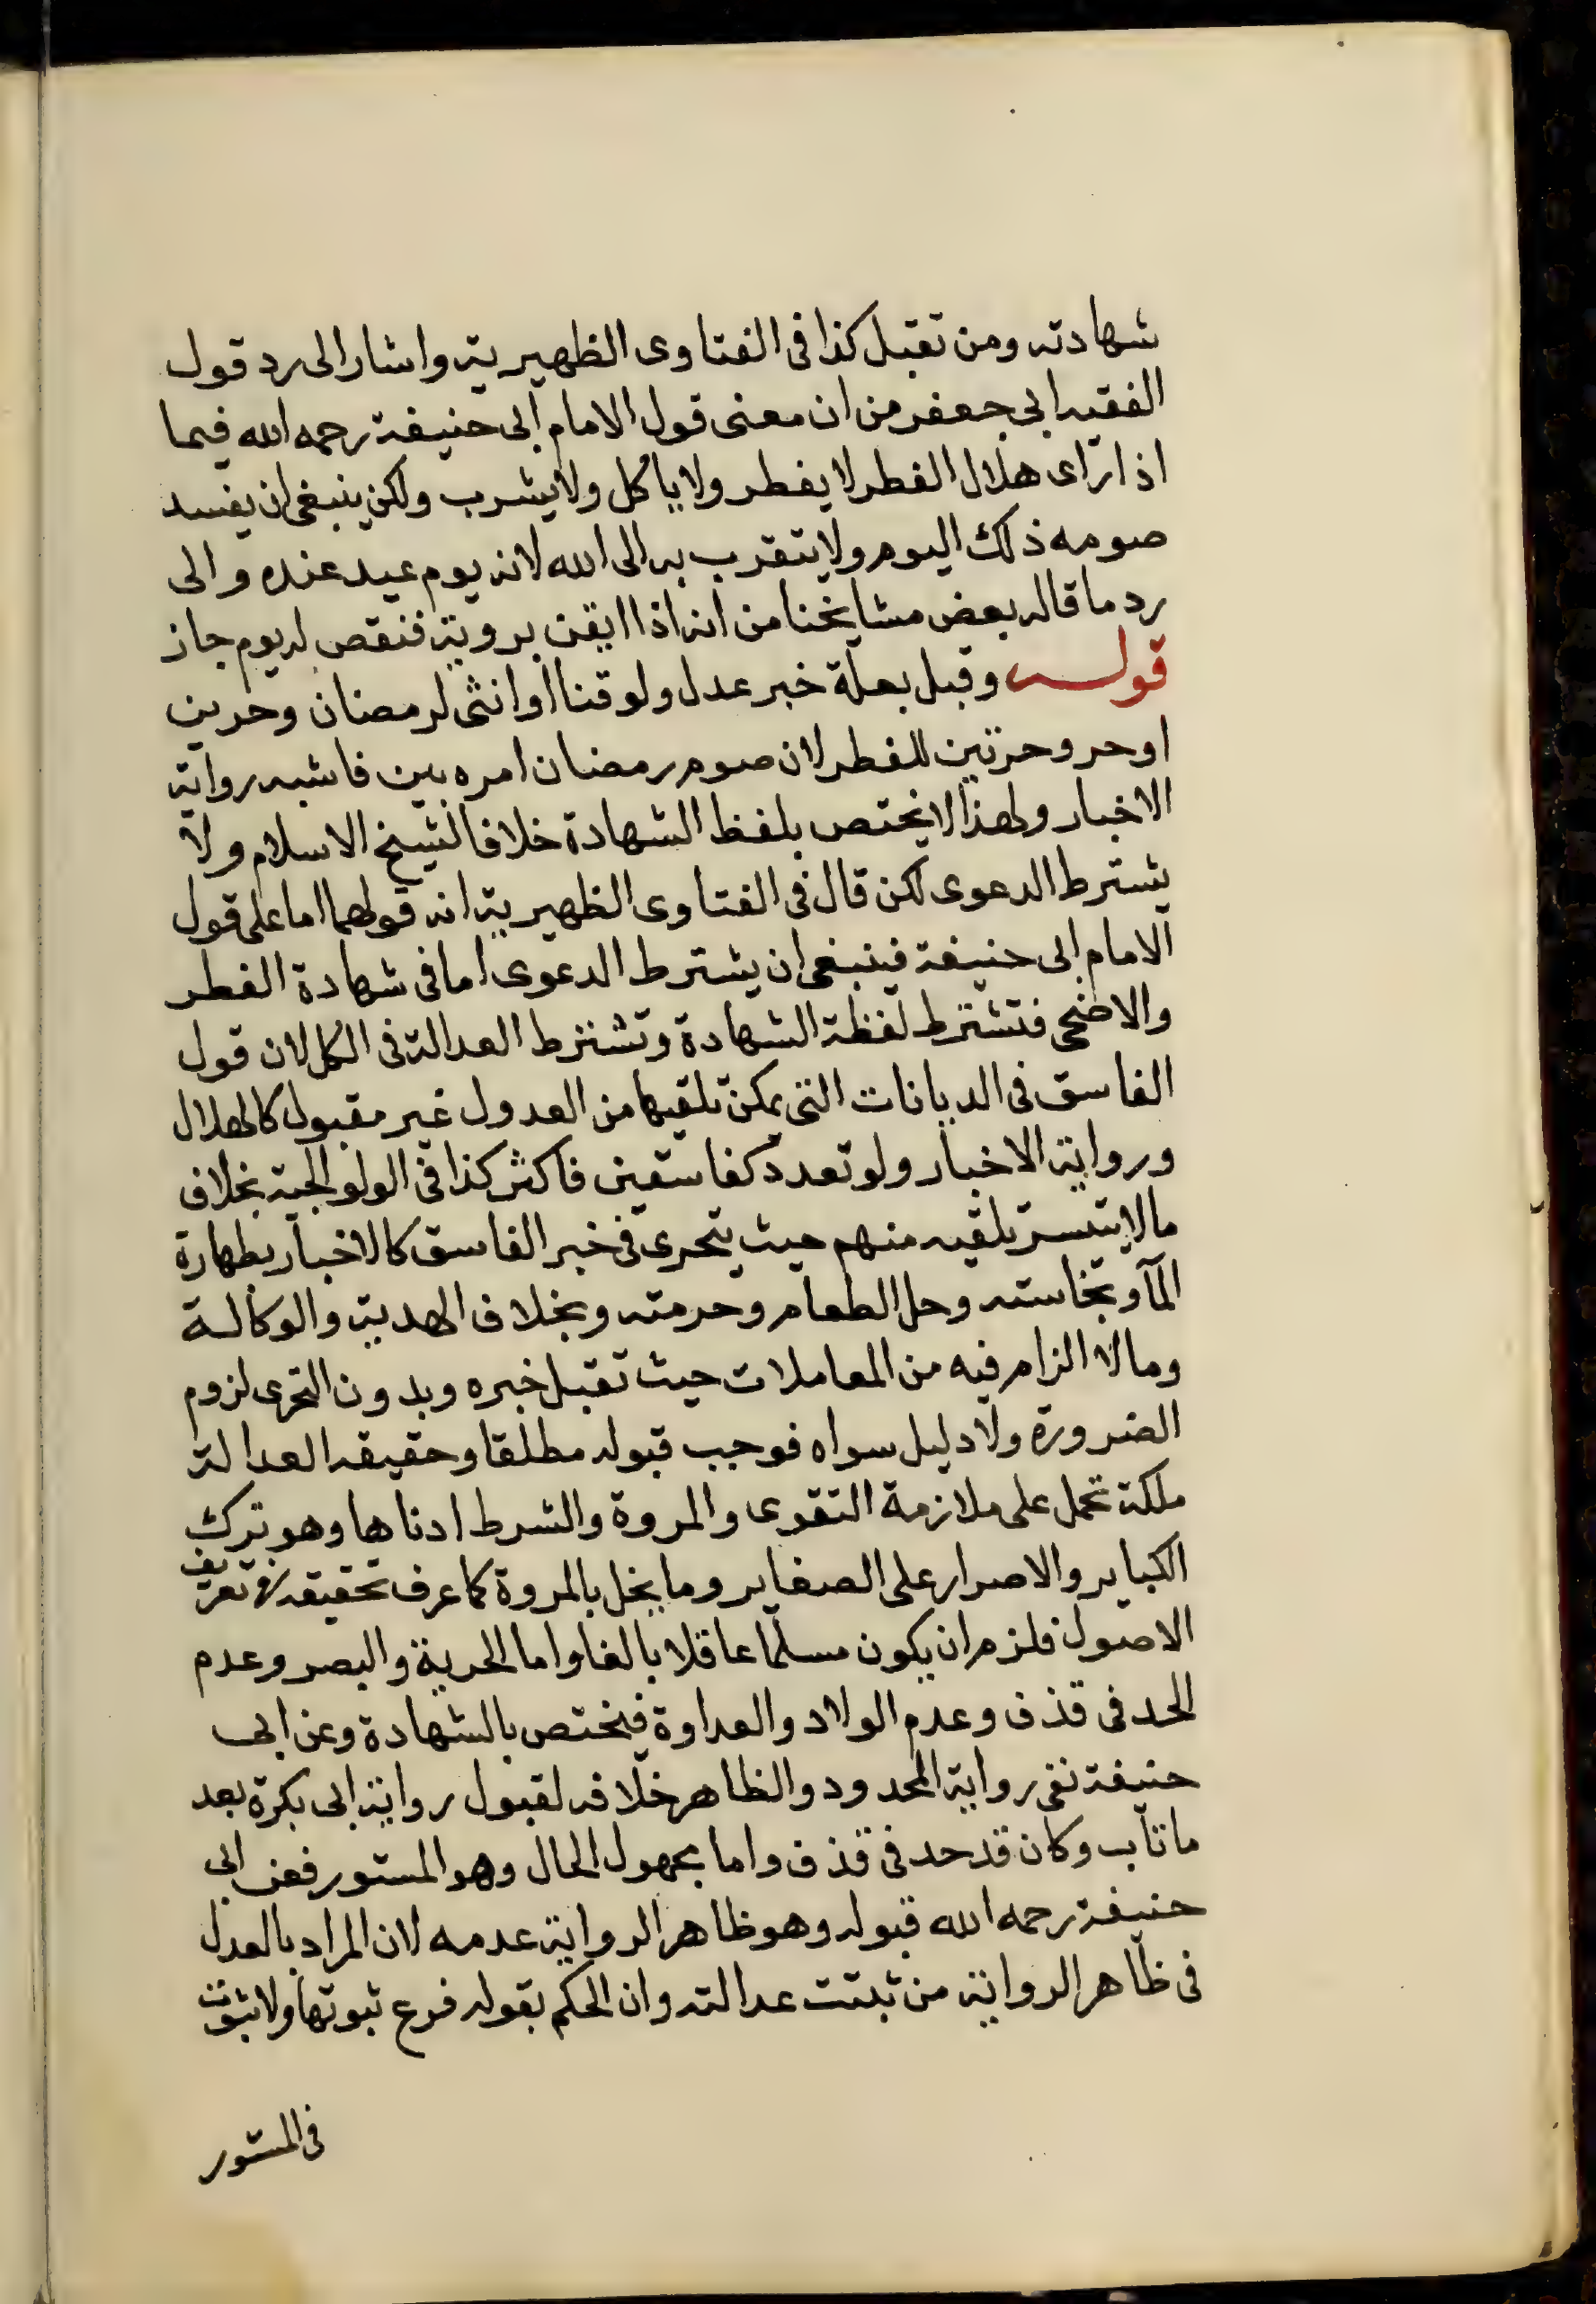 شهادته ومن تقبل كذا فى الفتاوى الظهيرية واشار الى رد قول
الفقيه ابى جعفر من ان معنى قول الامام ابى حنيفة رحمه الله فيما
اذا رآى هلال الفطر لا يفطر ولا ياكل ولا يشرب ولكن ينبغى ان يفسد
صومه ذلك اليوم ولا يتقرب به الى الله لانه يوم عيد عنده والى
رد ما قاله بعض مشايخنا من انه اذا ايقن بروية فنقص له يوم جاز
قوله وقبل بعلة خبر عدل ولو قنا او انثى لرمضان وحرين
او حر وحرتين للفطر لان صوم رمضان امره بين فاشبه رواية
الاخبار ولهذا لا يختص بلفظ الشهادة خلافا لشيخ الاسلام ولا
يشترط الدعوى لكن قال فى الفتاوى الظهيرية انه قولهما اما على قول
الامام ابى حنيفة فينبغى ان يشترط الدعوى اما فى شهادة الفطر
والاضحى فتشترط لفظة الشهادة وتشترط العدالة فى الكل لان قول
الفاسق فى الديانات التى يمكن تلقيها من العدول غير مقبول كالهلال
ورواية الاخبار ولو تعدد كفاسقين فاكثر كذا فى الولوالجية بخلاف
مالا يتيسر تلقيه منهم حيث يتحرى فى خبر الفاسق كالاخبار بطهارة
المآ ونجاسته وحل الطعام وحرمته وبخلاف الهدية والوكالة
وما لا الزام فيه من المعاملات حيث تقبل خبره وبدون التحرى لزوم
الضرورة ولا دليل سواه فوجب قبوله مطلقا وحقيقه العدالة
ملكة تحمل على ملازمة التقوى والمروة والشرط ادناها وهو ترك
الكباير والاصرار على الصغاير وما يخل بالمروة كما عرف تحقيقه فى تعريف
الاصول فلزم ان يكون مسلما عاقلا بالغا واما الحرية والبصر وعدم
الحد فى قذف وعدم الولاد والعداوة فيختص بالشهادة وعن ابى
حنيفة نفى رواية المحدود والظاهر خلافه لقبول رواية ابى بكرة بعد
ما تاب وكان قد حد فى قذف واما مجهول الحال وهو المستور فعن ابى
حنيفة رحمه الله قبوله وهو ظاهر الرواية عدمه لان المراد بالعدل
فى ظاهر الرواية من ثبتت عدالته وان الحكم بقوله فرع ثبوتها ولا ثبوت
فى المستور